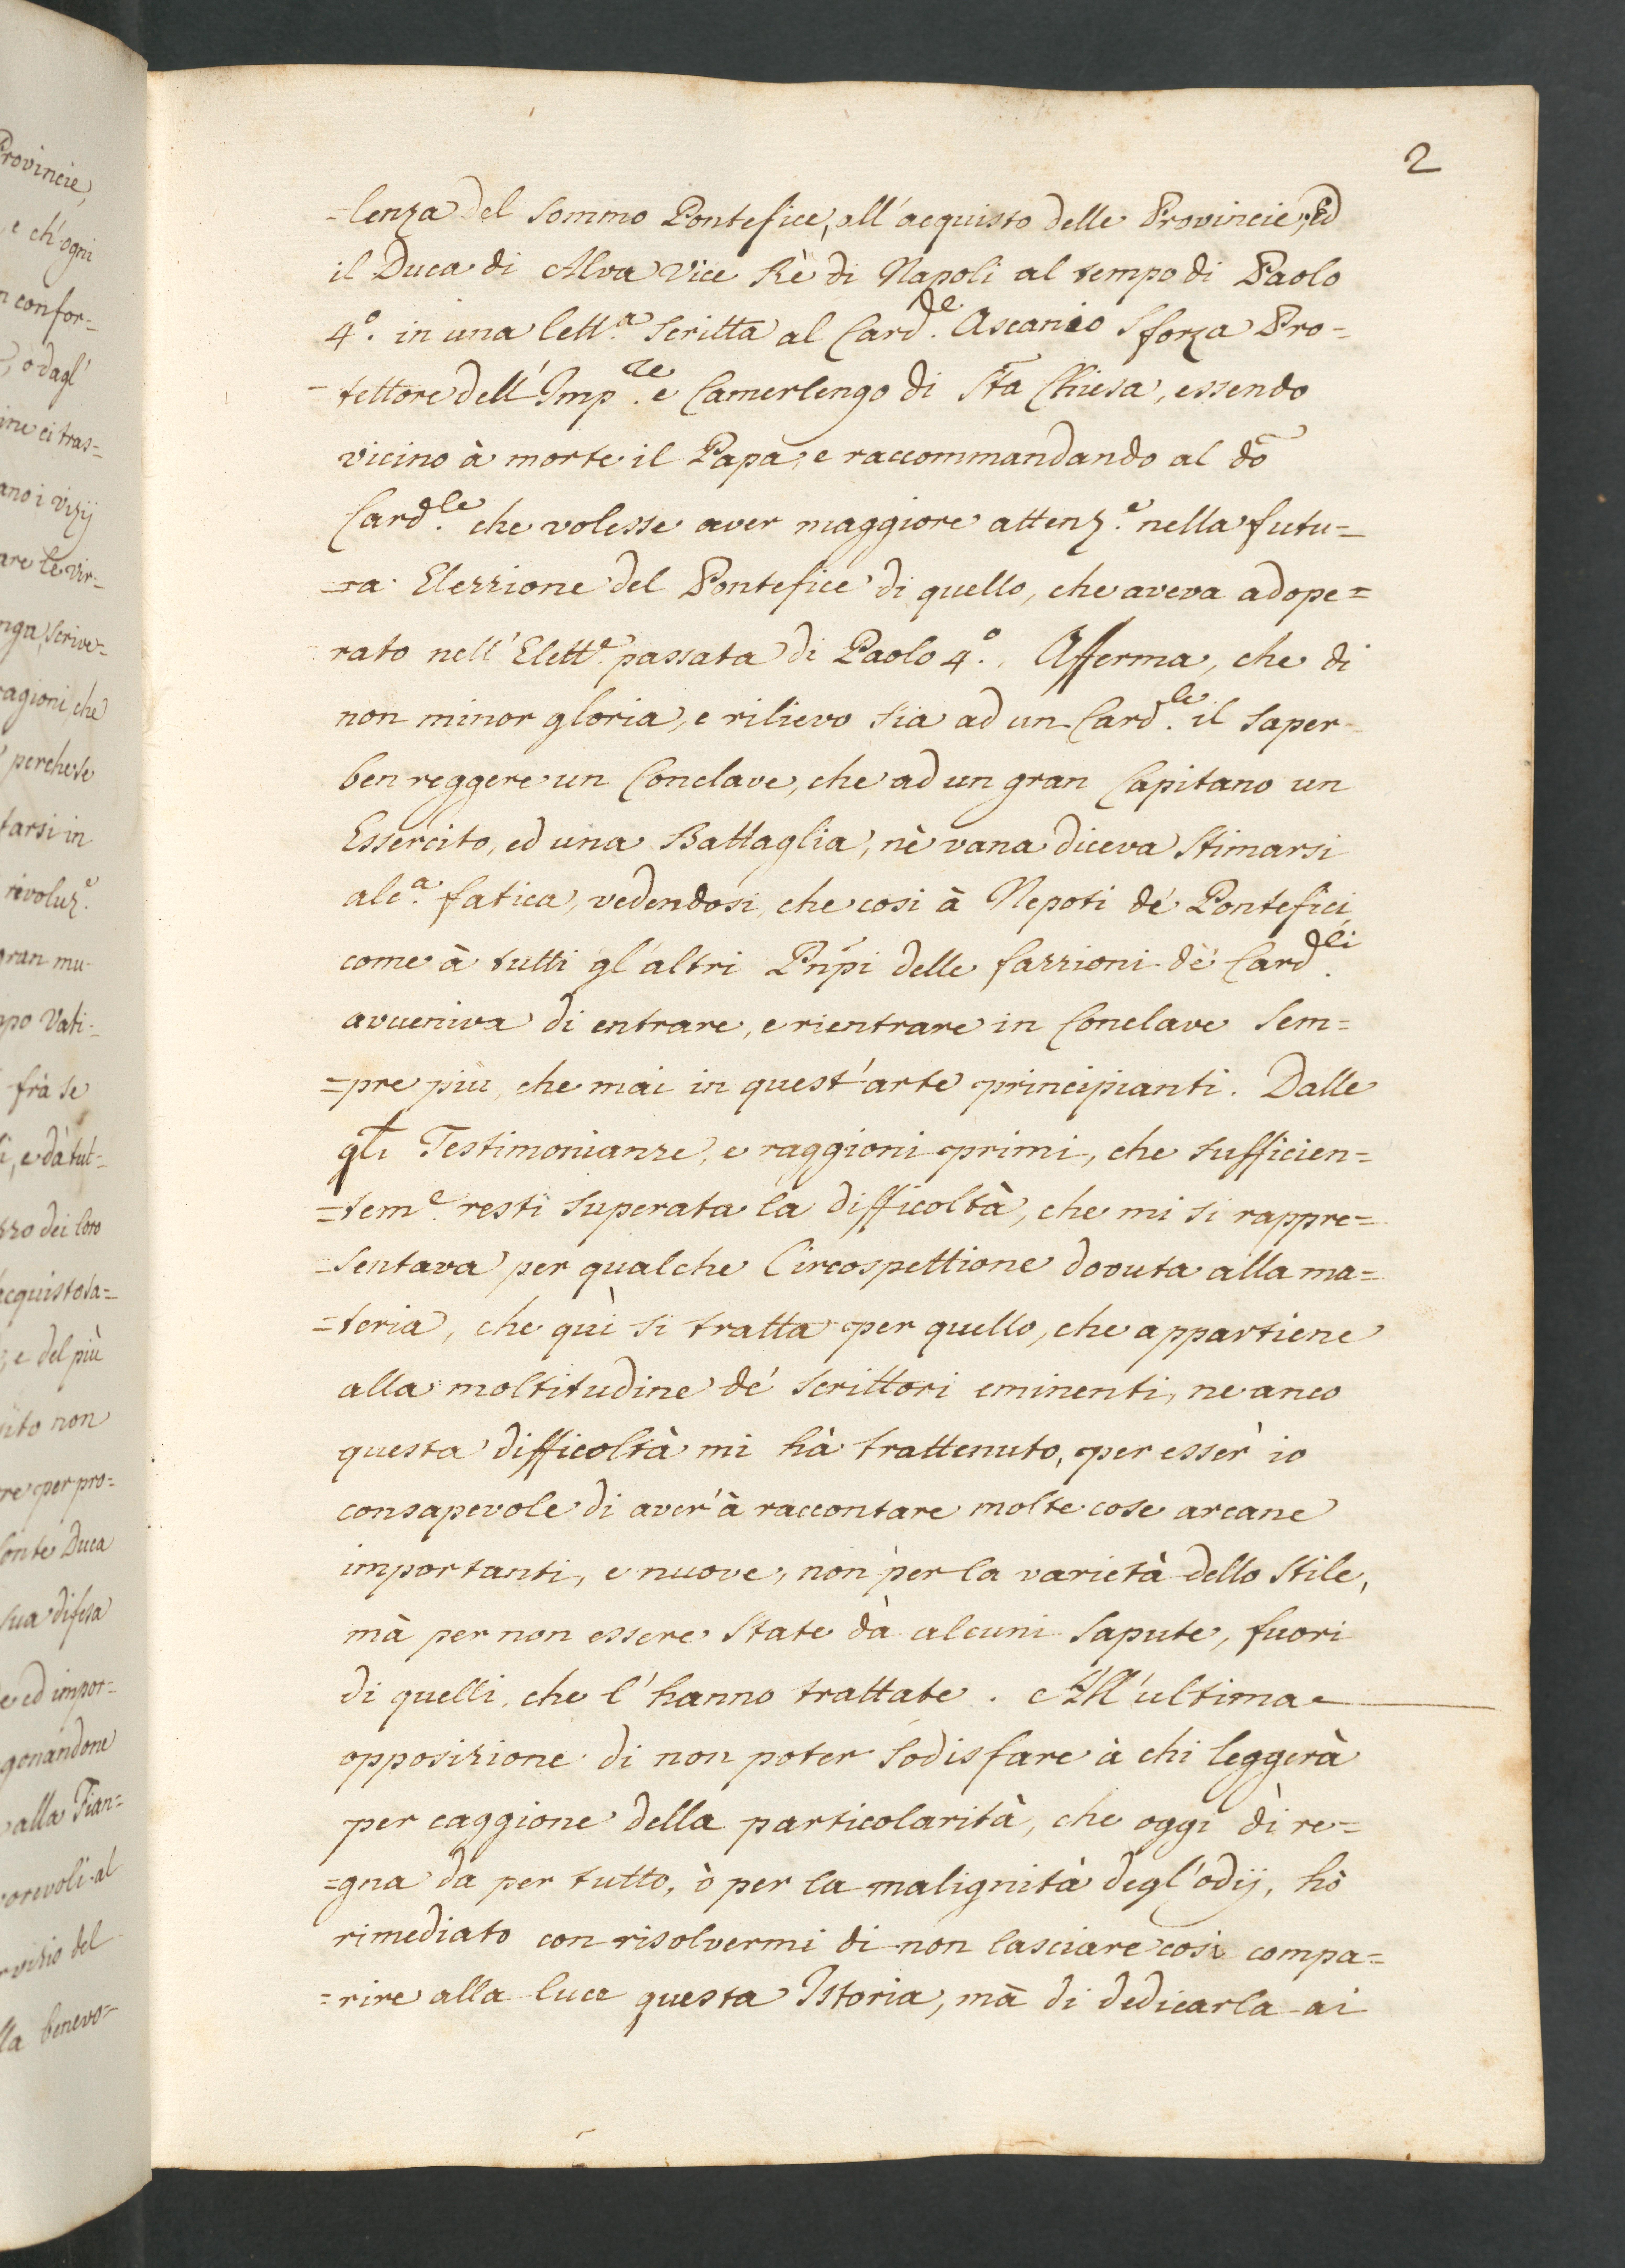 2
=lenza del sommo Pontefice, all'acquisto delle Provincie, Ed
il Duca di Alva Vice Rè di Napoli al tempo di Paolo
4.º in una lett.ª scritta al Card.le Ascanio Sforza Pro=
=tettore dell'Imp.re e Camerlengo di Sta Chiesa, essendo
vicino à morte il Papa, e raccommandando al do
Card.le che volesse aver maggiore attenz.e nella futu=
=ra Elezzione del Pontefice di quello, che aveva adope=
rato nell'Elett.e passata di Paolo 4.º. Afferma, che di
non minor gloria, e rilievo sia ad un Card.le il saper
ben reggere un Conclave, che ad un gran Capitano un
Essercito, ed una Battaglia, nè vana diceva stimarsi
alc.ª fatica, vedendosi, che cosi à Nepoti de' Pontefici,
come à tutti gl'altri Pnpi delle fazzioni de' Card.li
avveniva di entrare, e rientrare in Conclave sem=
=pre più, che mai in quest'arte principianti. Dalle
qli Testimonianze, e raggioni oprimi, che sufficien=
=tem.e resti superata la difficoltà, che mi si rappre=
=sentava per qualche Circospettione dovuta alla ma=
=teria, che quì si tratta per quello, che appartiene
alla moltitudine de' scrittori eminenti, ne anco
questa difficoltà mi hà trattenuto, per esser io
consapevole di aver'à raccontare molte cose arcane
importanti, e nuove, non per la varietà dello stile,
mà per non essere state dà alcuni sapute, fuori
di quelli, che l'hanno trattate. All'ultima
opposizione di non poter sodisfare à chi leggerà
per caggione della particolarità, che oggi dì re=
=gna da per tutto, ò per la malignità degl'odij, hò
rimediato con risolvermi di non lasciare cosi compa=
=rire alla luce questa Istoria, mà di dedicarla ai
Provincie,
e ch'ogni
confor=
, o dagl'
ci tras=
ano i vizij
are le vir=
scrive=
ragioni, che
perche se
tarsi in
rivoluz.e
gran mu
Vati=
frà se
, e dà tut=
dei loro
acquisto sa=
, e del più
non
re per pro=
Conte Duca
sua difesa
ed impor=
alla Fian=
al
del
lla benevo=